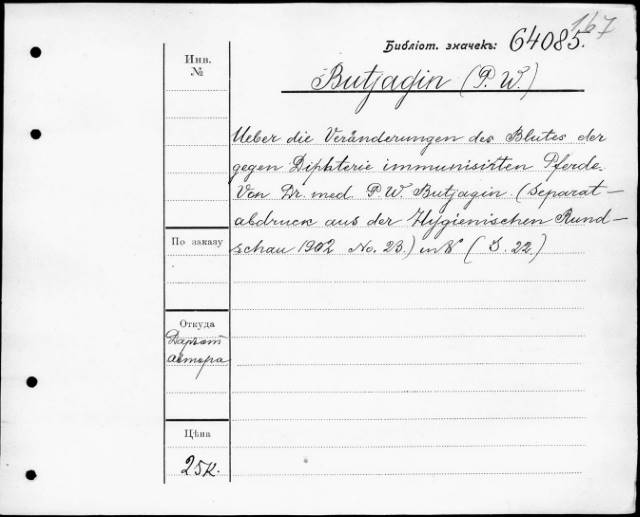 167
Библіот. значекъ: 64085.
Инв.
№
Butjagin (P. W.)
Ueber die Veränderungen des Blutes der
gegen Diphterie immunisirten Pferde.
Von Dr. med. P. W. Butjagin (Separat-
abdruck aus der Hygienischen Rund-
schau 1902 No. 23.) in 8° (S. 22.)
По заказу
Откуда
Даръ отъ
автора
Цѣна
25к.